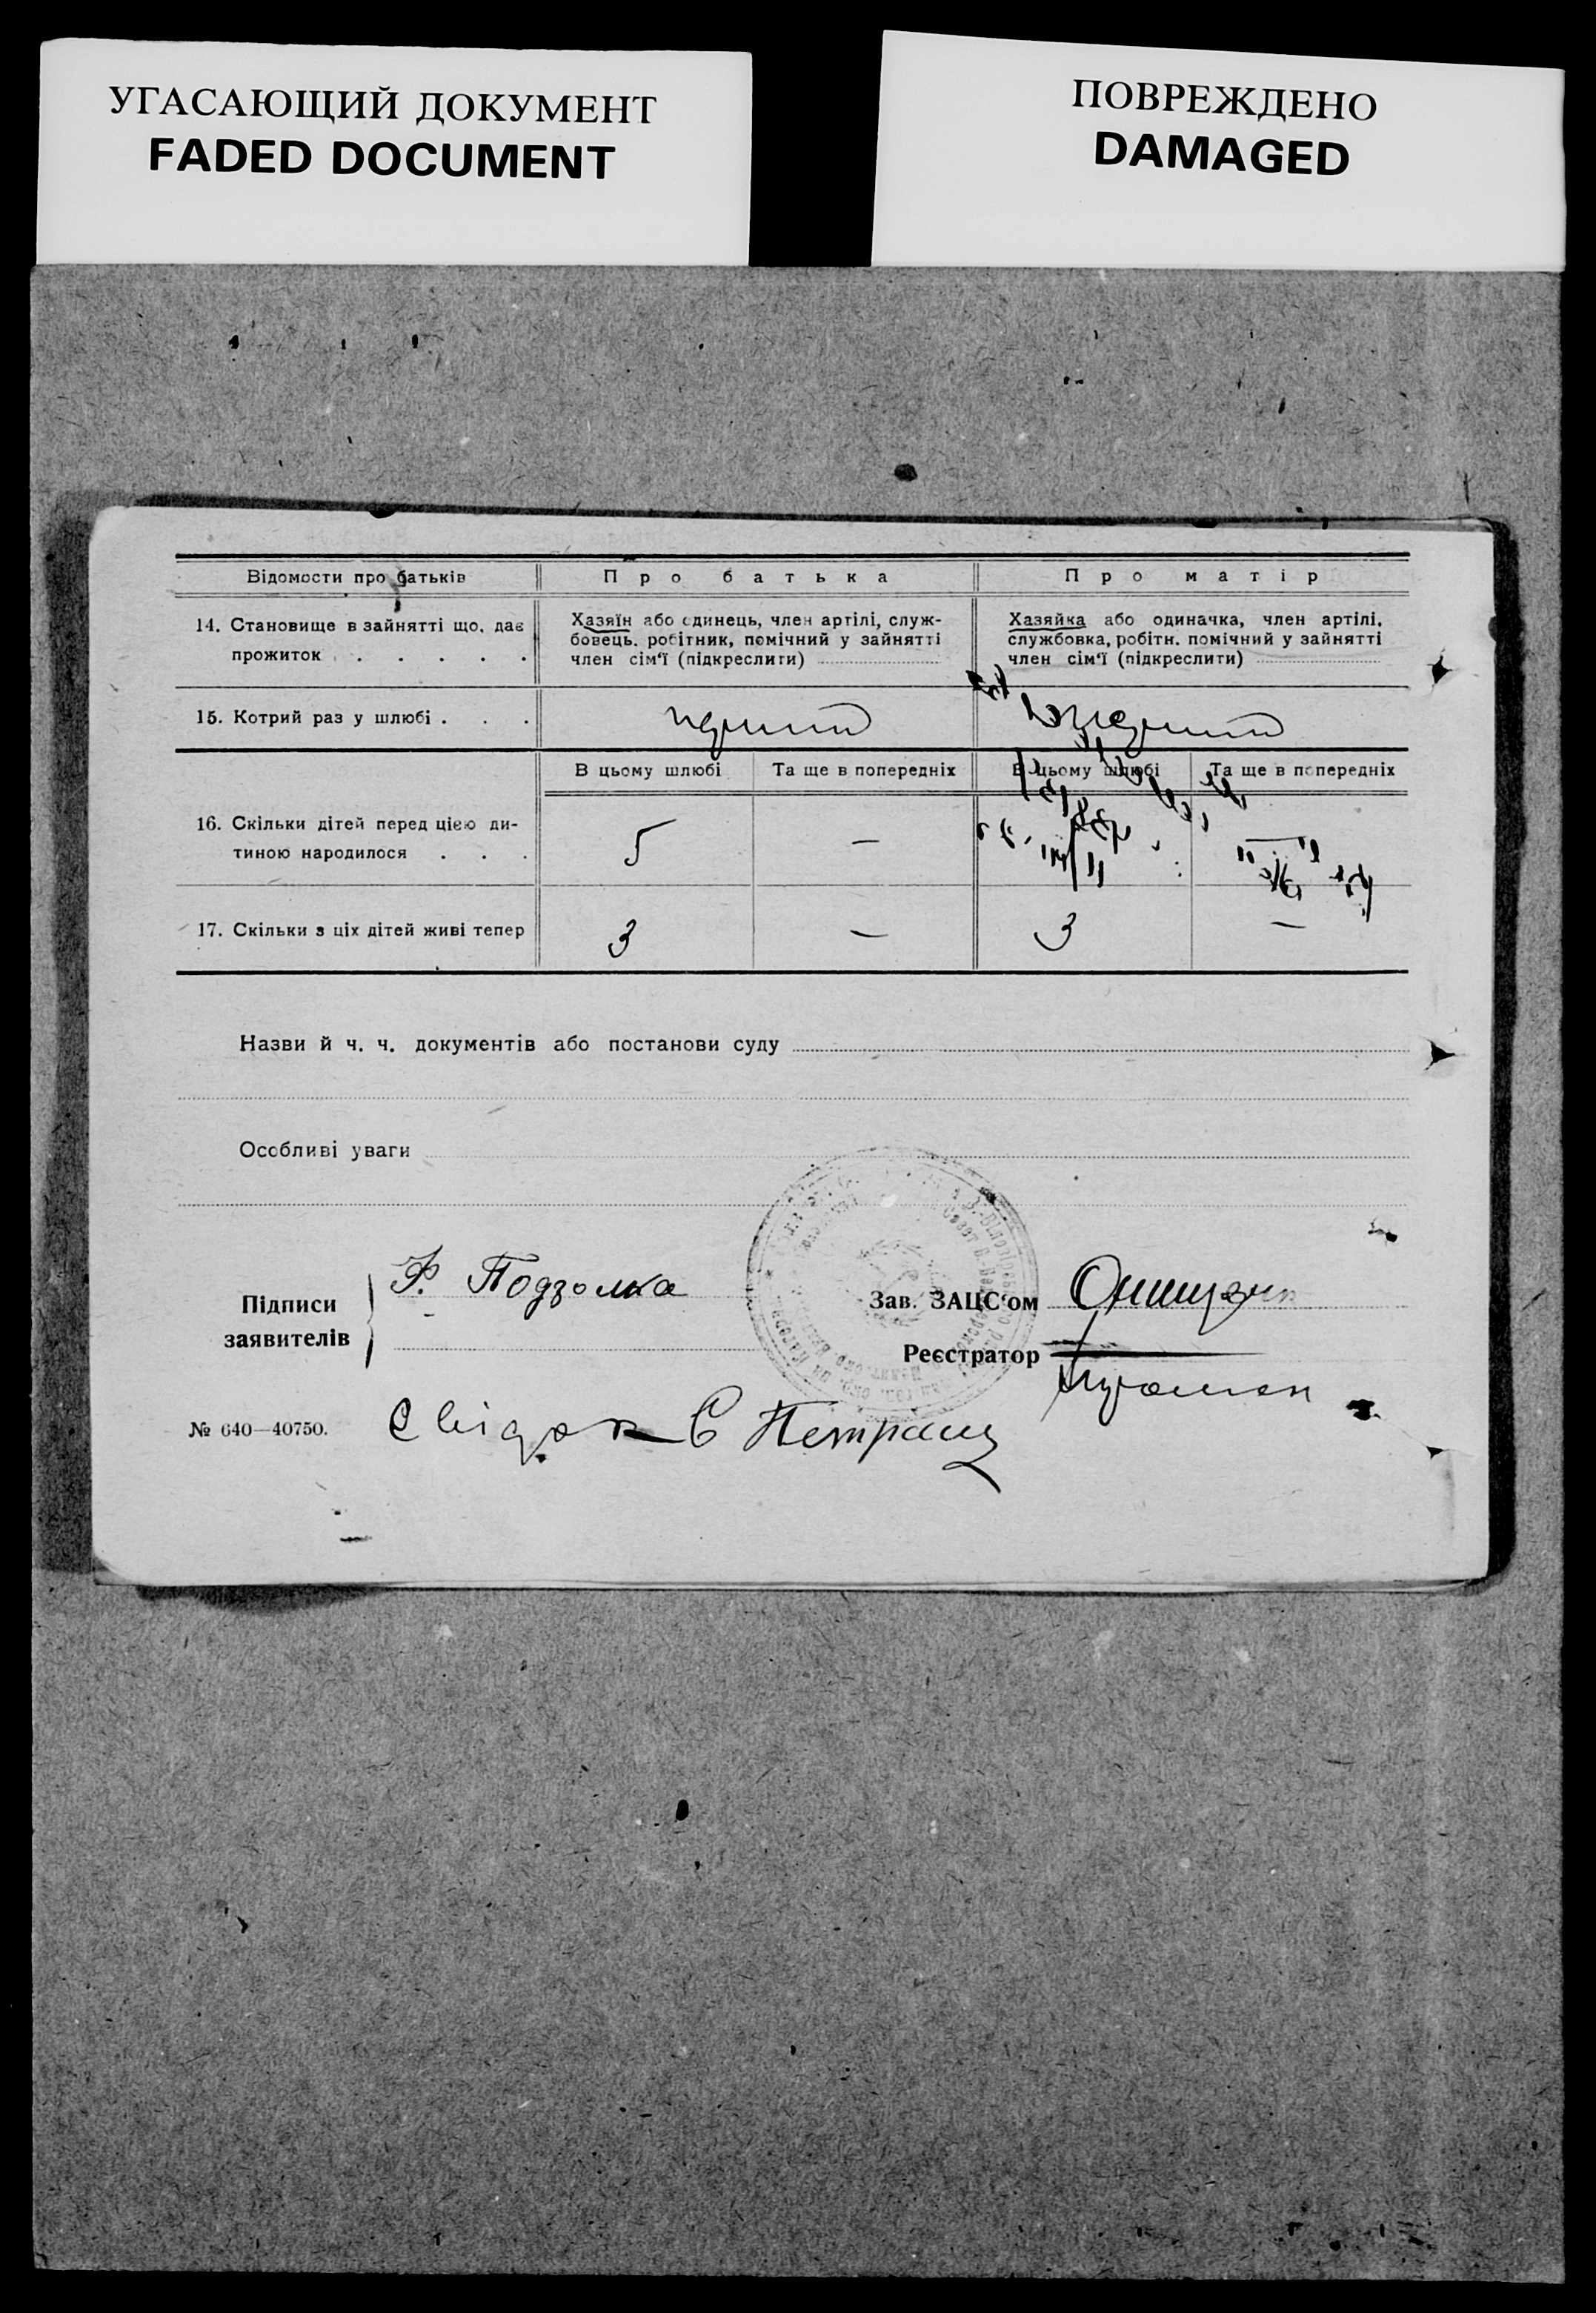 УГАСАЮЩИЙ ДОКУМЕНТ
FADED DOCUMENT
ПОВРЕЖДЕНО
DAMAGED
Відомости про батьків
Про батька
Про матір
14. Становище в зайнятті що, дає
прожиток . . . . .
Хазяїн або одинець, член артілі, служ-
бовець, робітник, помічний у зайнятті
член сім'ї (підкреслити)
Хазяйка або одиначка, член артілі,
службовка, робітн. помічний у зайнятті
член сім'ї (підкреслити)
15. Котрий раз у шлюбі . . .
В цьому шлюбі
Та ще в попередніх
В цьому шлюбі
Та ще в попередніх
16. Скільки дітей перед цією ди-
тиною народилося . . .
5
—
17. Скільки з ціх дітей живі тепер
3
—
3
—
Назви й ч. ч. документів або постанови суду
Особливі уваги
Підписи
заявителів
Ф. Подзолка
Зав. ЗАЦС'ом
Реєстратор
№ 640—40750.
Свідок С Петраш